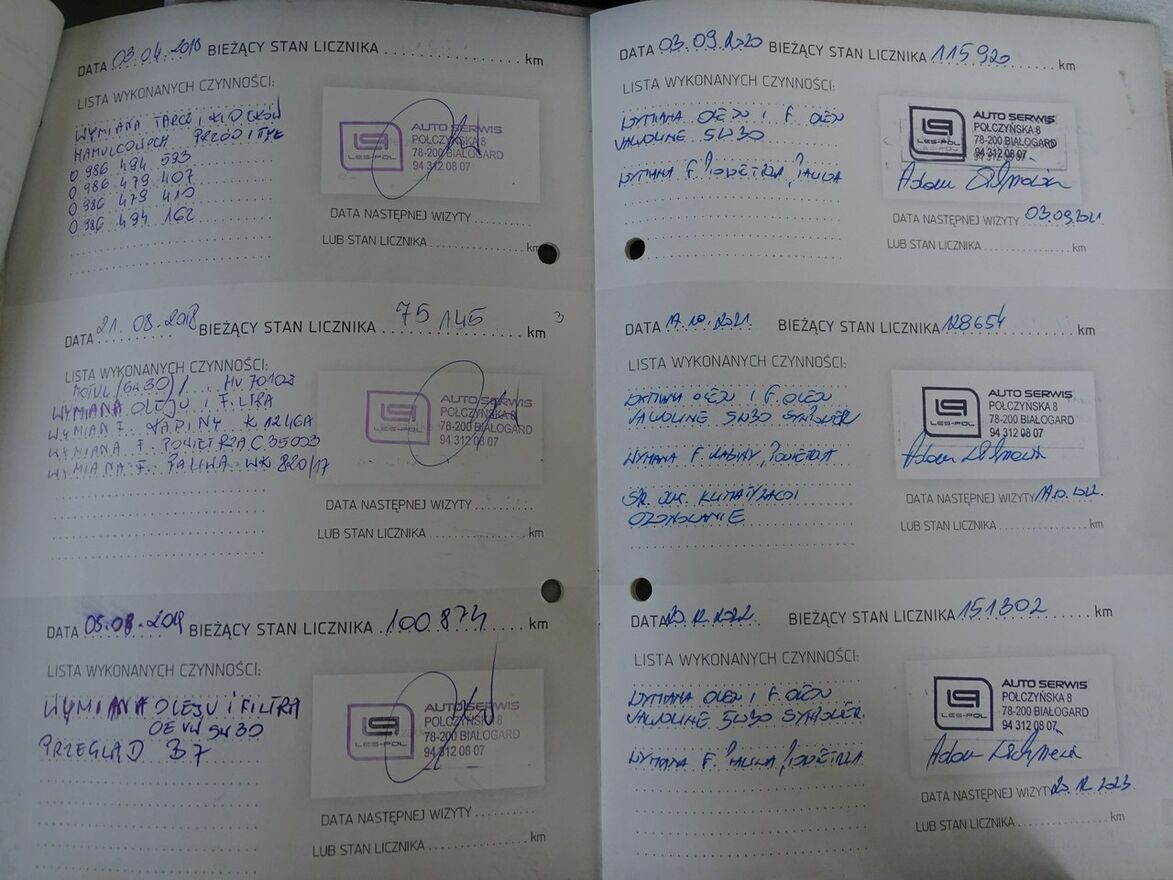 DATA 03.04.2018 BIEŻĄCY STAN LICZNIKA km
LISTA WYKONANYCH CZYNNOŚCI:
WYMIANA TARCZ I KLOCKÓW
HAMULCOWYCH PRZÓD I TYŁ
0 986 494 593
0 986 479 407
0 986 479 410
0 986 494 162
LES-POL
AUTO SERWIS
POŁCZYŃSKA 8
78-200 BIAŁOGARD
94 312 08 07
DATA NASTĘPNEJ WIZYTY
LUB STAN LICZNIKA km
DATA 21.08.2018 BIEŻĄCY STAN LICZNIKA 75 145 km
LISTA WYKONANYCH CZYNNOŚCI:
MOTUL (5W30)
WYMIANA OLEJU I FILTRA
WYMIANA F. POWIETRZA C 35003
WYMIANA F. PALIWA WK 820/17
LES-POL
AUTO SERWIS
POŁCZYŃSKA 8
78-200 BIAŁOGARD
94 312 08 07
DATA NASTĘPNEJ WIZYTY
LUB STAN LICZNIKA km
DATA 05.08.2019 BIEŻĄCY STAN LICZNIKA 100874 km
LISTA WYKONANYCH CZYNNOŚCI:
WYMIANA OLEJU I FILTRA
OE VW 5W30
PRZEGLĄD B7
LES-POL
AUTO SERWIS
POŁCZYŃSKA 8
78-200 BIAŁOGARD
94 312 08 07
DATA NASTĘPNEJ WIZYTY
LUB STAN LICZNIKA km
DATA 03.09.2020 BIEŻĄCY STAN LICZNIKA 115920 km
LISTA WYKONANYCH CZYNNOŚCI:
WYMIANA OLEJU I F. OLEJU
VALVOLINE 5W30
WYMIANA F. POWIETRZA, PALIWA
LES-POL
AUTO SERWIS
POŁCZYŃSKA 8
78-200 BIAŁOGARD
94 312 08 07
Adam
DATA NASTĘPNEJ WIZYTY 03.09.2021.
LUB STAN LICZNIKA km
DATA 19.10.2021. BIEŻĄCY STAN LICZNIKA 128654 km
LISTA WYKONANYCH CZYNNOŚCI:
WYMIANA OLEJU I F. OLEJU
VALVOLINE 5W30 SYNPOWER
WYMIANA F. KABINY, POWIETRZA
KLIMATYZACJI
OZONOWANIE
LES-POL
AUTO SERWIS
POŁCZYŃSKA 8
78-200 BIAŁOGARD
94 312 08 07
Adam
DATA NASTĘPNEJ WIZYTY 19.10.2022.
LUB STAN LICZNIKA km
DATA 20.12.2022. BIEŻĄCY STAN LICZNIKA 151302 km
LISTA WYKONANYCH CZYNNOŚCI:
WYMIANA OLEJU I F. OLEJU
VALVOLINE 5W30 SYNPOWER.
WYMIANA F. PALIWA, POWIETRZA
LES-POL
AUTO SERWIS
POŁCZYŃSKA 8
78-200 BIAŁOGARD
94 312 08 07
Adam
DATA NASTĘPNEJ WIZYTY 20.12.2023
LUB STAN LICZNIKA km